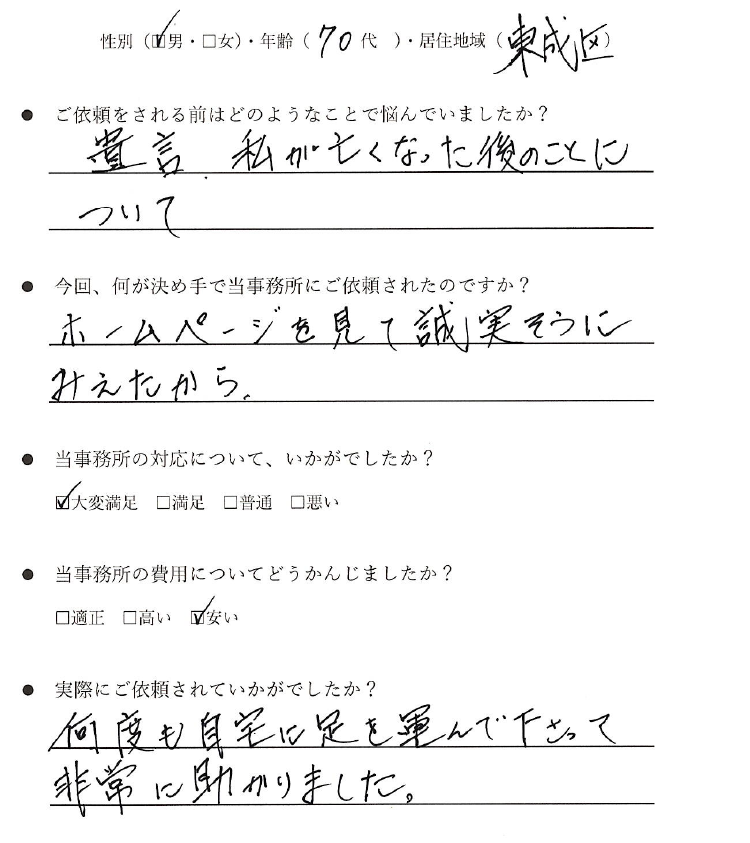 性別（☑男・□女）・年齢（ 70 代 ）・居住地域（ 東成区 ）
● ご依頼をされる前はどのようなことで悩んでいましたか？
遺言、私が亡くなった後のことに
ついて
● 今回、何が決め手で当事務所にご依頼されたのですか？
ホームページを見て誠実そうに
みえたから。
● 当事務所の対応について、いかがでしたか？
☑大変満足 □満足 □普通 □悪い
● 当事務所の費用についてどうかんじましたか？
□適正 □高い ☑安い
● 実際にご依頼されていかがでしたか？
何度も自宅に足を運んで下さって
非常に助かりました。